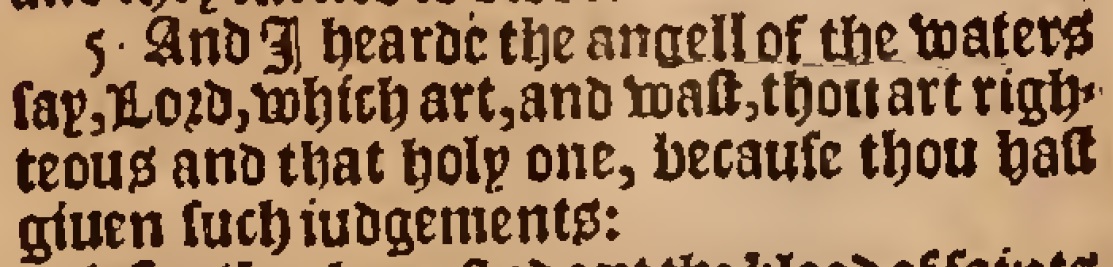 5. And I hearde the angell of the waters
ſay, Lord, which art, and waſt, thou art righ-
teous and that holy one, becauſe thou haſt
giuen ſuch iudgements: